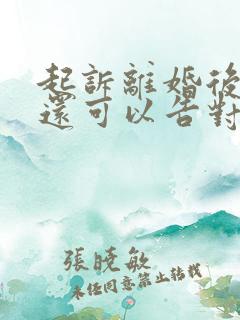 起訴離婚後
還可以告對
張曉敏
未经同意禁止转载